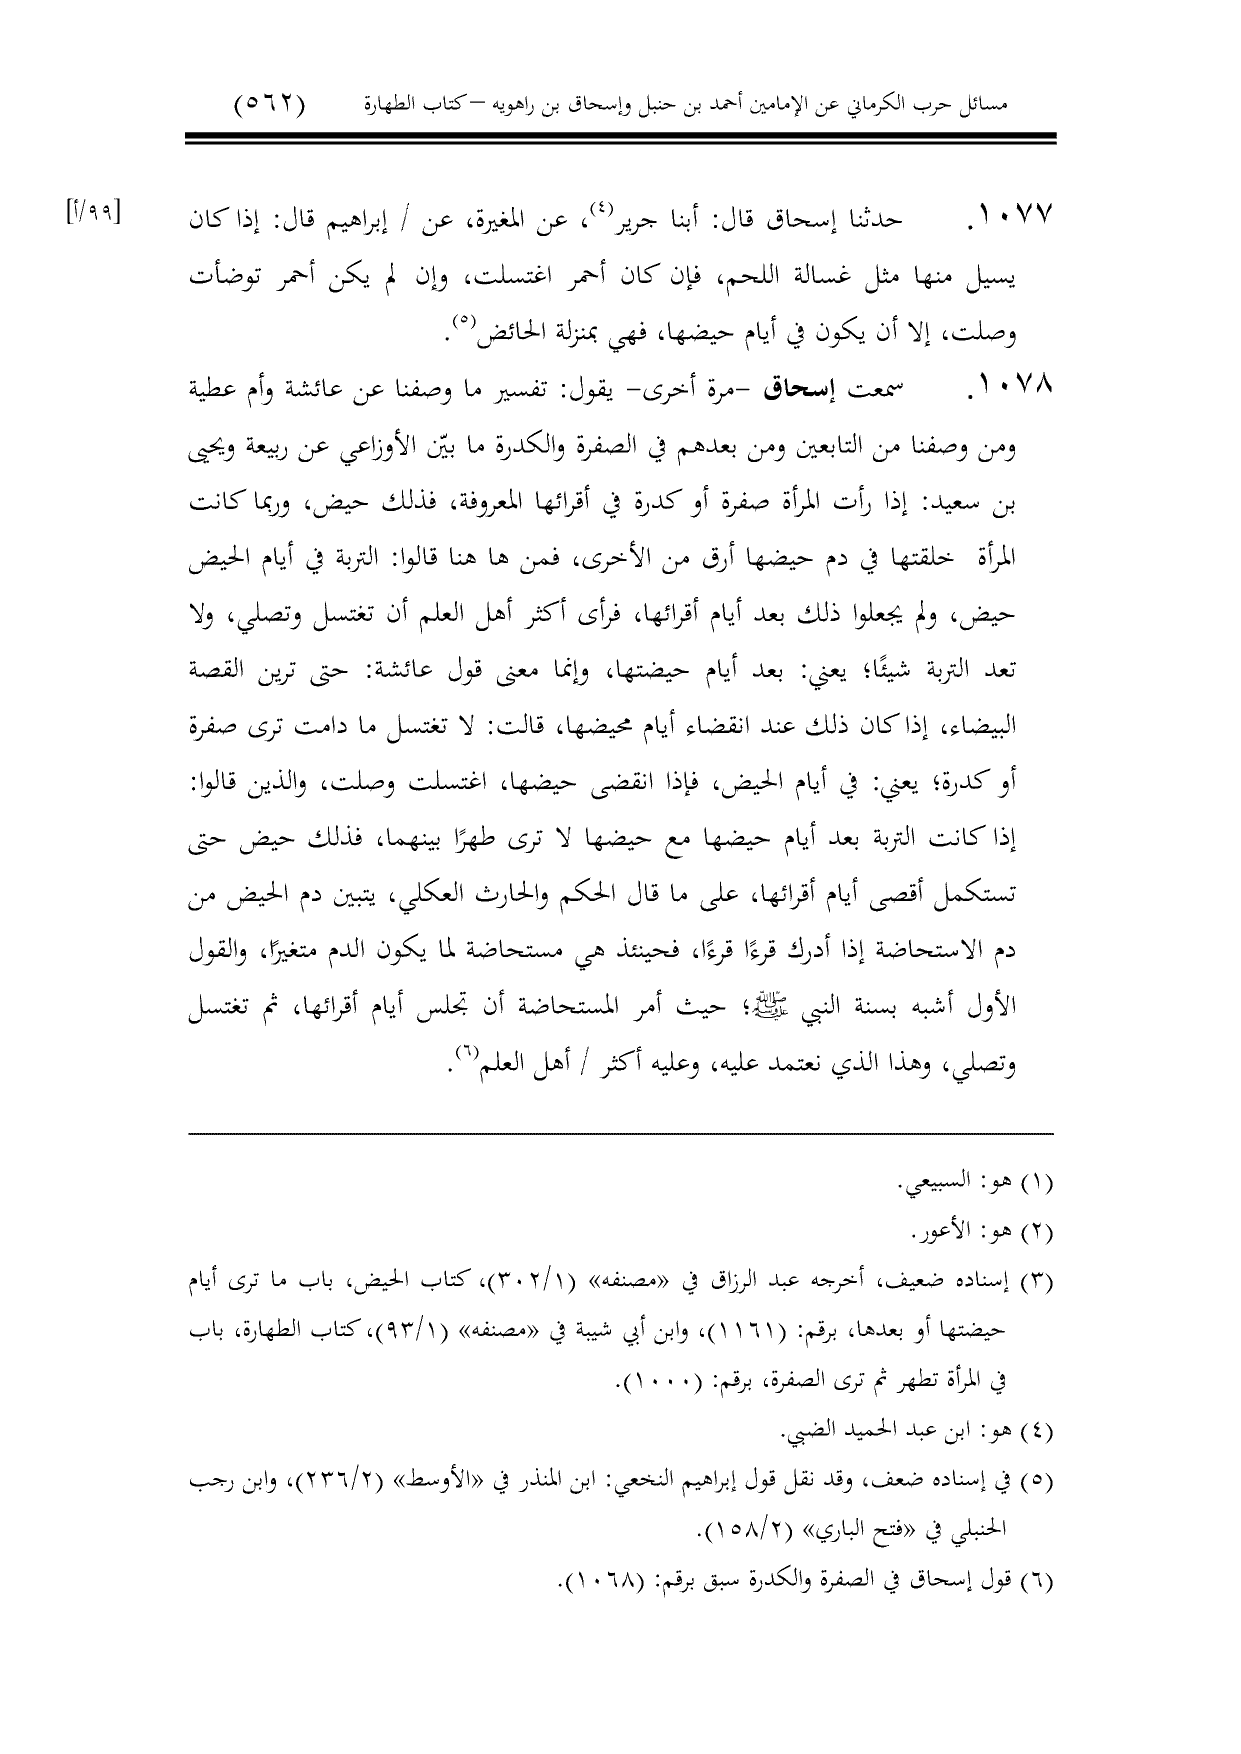 مسائل حرب الكرماني عن الإمامين أحمد بن حنبل وإسحاق بن راهويه – كتاب الطهارة (٥٦٢)
١٠٧٧. حدثنا إسحاق قال: أبنا جرير(٤)، عن المغيرة، عن / إبراهيم قال: إذا كان [٩٩/أ]
يسيل منها مثل غسالة اللحم، فإن كان أحمر اغتسلت، وإن لم يكن أحمر توضأت
وصلت، إلا أن يكون في أيام حيضها، فهي بمنزلة الحائض(٥).
١٠٧٨. سمعت إسحاق –مرة أخرى– يقول: تفسير ما وصفنا عن عائشة وأم عطية
ومن وصفنا من التابعين ومن بعدهم في الصفرة والكدرة ما بيّن الأوزاعي عن ربيعة ويحيى
بن سعيد: إذا رأت المرأة صفرة أو كدرة في أقرائها المعروفة، فذلك حيض، وربما كانت
المرأة خلقتها في دم حيضها أرق من الأخرى، فمن ها هنا قالوا: التربة في أيام الحيض
حيض، ولم يجعلوا ذلك بعد أيام أقرائها، فرأى أكثر أهل العلم أن تغتسل وتصلي، ولا
تعد التربة شيئًا؛ يعني: بعد أيام حيضتها، وإنما معنى قول عائشة: حتى ترين القصة
البيضاء، إذا كان ذلك عند انقضاء أيام محيضها، قالت: لا تغتسل ما دامت ترى صفرة
أو كدرة؛ يعني: في أيام الحيض، فإذا انقضى حيضها، اغتسلت وصلت، والذين قالوا:
إذا كانت التربة بعد أيام حيضها مع حيضها لا ترى طهرًا بينهما، فذلك حيض حتى
تستكمل أقصى أيام أقرائها، على ما قال الحكم والحارث العكلي، يتبين دم الحيض من
دم الاستحاضة إذا أدرك قرءًا قرءًا، فحينئذ هي مستحاضة لما يكون الدم متغيرًا، والقول
الأول أشبه بسنة النبي ﷺ؛ حيث أمر المستحاضة أن تجلس أيام أقرائها، ثم تغتسل
وتصلي، وهذا الذي نعتمد عليه، وعليه أكثر / أهل العلم(٦).
(١) هو: السبيعي.
(٢) هو: الأعور.
(٣) إسناده ضعيف، أخرجه عبد الرزاق في «مصنفه» (٣٠٢/١)، كتاب الحيض، باب ما ترى أيام
حيضتها أو بعدها، برقم: (١١٦١)، وابن أبي شيبة في «مصنفه» (٩٣/١)، كتاب الطهارة، باب
في المرأة تطهر ثم ترى الصفرة، برقم: (١٠٠٠).
(٤) هو: ابن عبد الحميد الضبي.
(٥) في إسناده ضعف، وقد نقل قول إبراهيم النخعي: ابن المنذر في «الأوسط» (٢٣٦/٢)، وابن رجب
الحنبلي في «فتح الباري» (١٥٨/٢).
(٦) قول إسحاق في الصفرة والكدرة سبق برقم: (١٠٦٨).